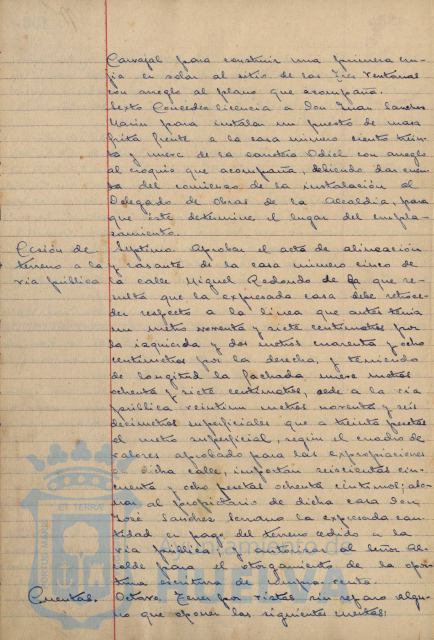 Carvajal para construir una primera cru-
jía en solar al sitio de las Tres Ventanas
con arreglo al plano que acompaña.
Sexto Conceder licencia a Don Juan Sanchez
Marin para instalar un puesto de masa
frita frente a la casa número ciento trein-
ta y nueve de la barriada Odiel con arreglo
al croquis que acompaña, debiendo dar cuen-
ta del comienzo de la instalación al
Delegado de obras de la Alcaldía, para
que éste determine el lugar del empla-
zamiento.
Cesión de
terreno a la
vía pública
Septimo Aprobar el acta de alineación
y rasante de la casa número cinco de
la calle Miguel Redondo de la que re-
sulta que la expresada casa debe retroce-
der respecto a la línea que antes tenía
un metro noventa y siete centimetros por
la izquierda y dos metros cuarenta y ocho
centimetros por la derecha, y teniendo
de longitud la fachada nueve metros
ochenta y siete centimetros, cede a la vía
pública veintiun metros noventa y seis
decimetros superficiales que a treinta pesetas
el metro superficial, según el cuadro de
valores aprobado para las expropiaciones
de dicha calle, importan seiscientas cin-
cuenta y ocho pesetas ochenta centimos; abo-
nar al propietario de dicha casa Don
José Sanchez Serrano la expresada can-
tidad en pago del terreno cedido a la
vía pública; y autorizar al señor Al-
calde para el otorgamiento de la opor-
tuna escritura de compra-venta.
Cuentas.
Octavo. Tener por vistas sin reparo algu-
no que oponer las siguientes cuentas: